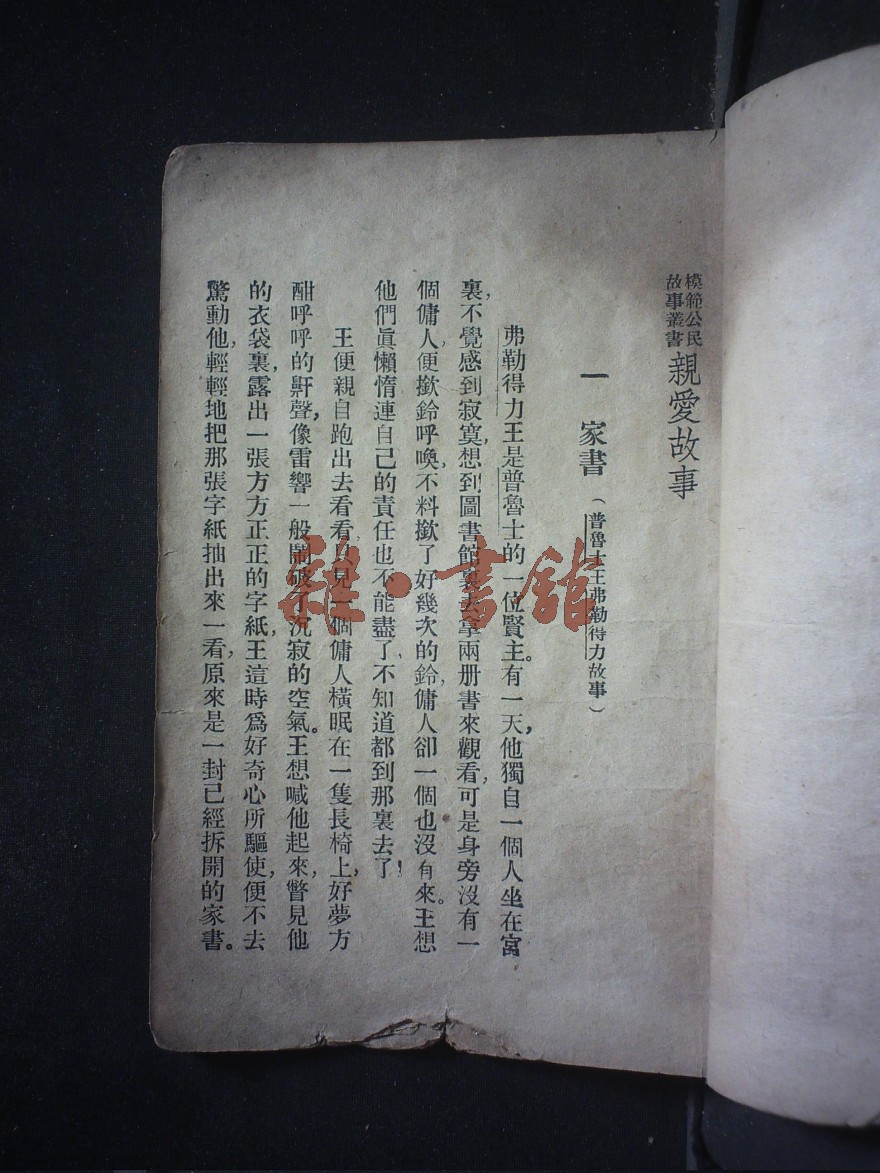 模範公民
故事叢書
親愛故事
一 家書（普魯士王弗勒得力故事）
弗勒得力王是普魯士的一位賢主。有一天，他獨自一個人坐在宮
裏，不覺感到寂寞，想到圖書館裏去拿兩册書來觀看，可是身旁沒有一
個傭人，便撳鈴呼喚，不料撳了好幾次的鈴，傭人卻一個也沒有來。王想
他們眞懶惰，連自己的責任也不能盡了，不知道都到那裏去了！
王便親自跑出去看看，只見一個傭人橫眠在一隻長椅上，好夢方
酣，呼呼的鼾聲，像雷響一般，鬧破了沉寂的空氣。王想喊他起來，瞥見他
的衣袋裏，露出一張方方正正的字紙，王這時爲好奇心所驅使，便不去
驚動他，輕輕地把那張字紙抽出來一看，原來是一封已經拆開的家書。
雜·書館